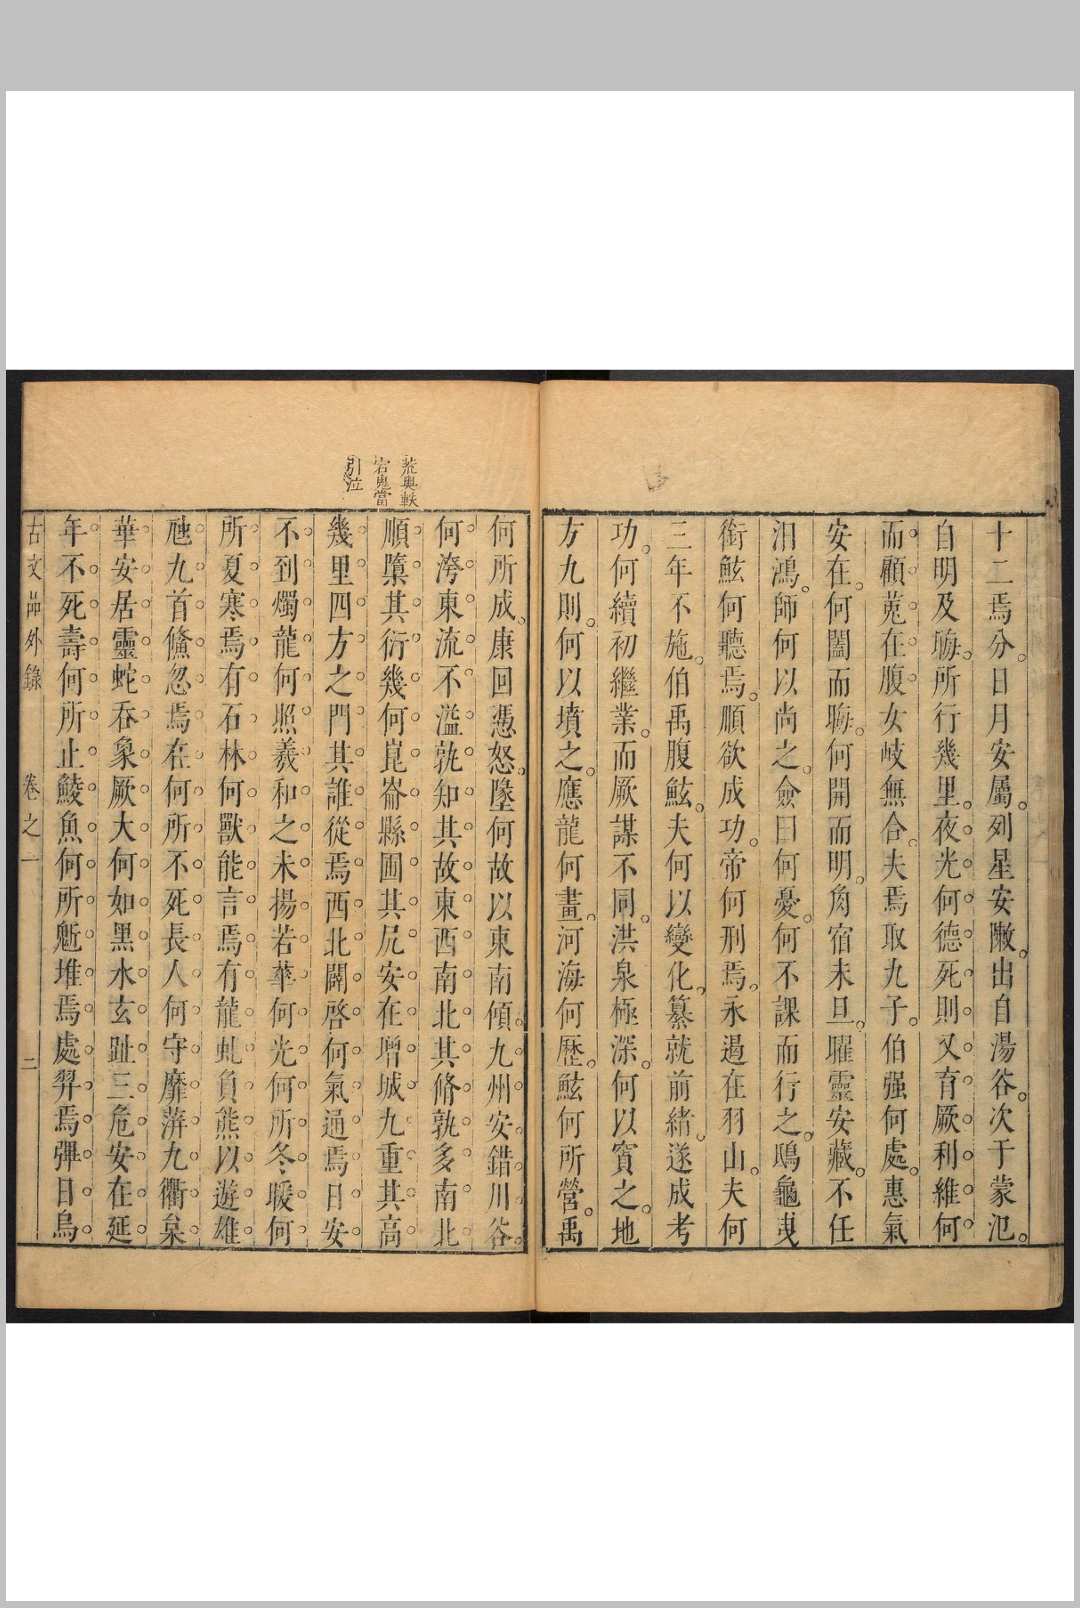 十二焉分日月安屬列星安敶出自湯谷次于蒙氾
自明及晦所行幾里夜光何德死則又育厥利維何
而顧菟在腹女岐無合夫焉取九子伯强何處惠氣
安在何闔而晦何開而明角宿未旦曜靈安藏不任
汩鴻師何以尚之僉曰何憂何不課而行之鴟龜曳
銜鮌何聽焉順欲成功帝何刑焉永遏在羽山夫何
三年不施伯禹腹鮌夫何以變化纂就前緒遂成考
功何續初繼業而厥謀不同洪泉極深何以窴之地
方九則何以墳之應龍何畫河海何歷鮌何所營禹
何所成康回憑怒墬何故以東南傾九州安錯川谷
何洿東流不溢孰知其故東西南北其脩孰多南北
順隳其衍幾何崑崙縣圃其凥安在增城九重其高
幾里四方之門其誰從焉西北闢啓何氣通焉日安
不到燭龍何照羲和之未揚若華何光何所冬暖何
所夏寒焉有石林何獸能言焉有龍虬負熊以遊雄
虺九首儵忽焉在何所不死長人何守靡蓱九衢枲
華安居靈蛇吞象厥大何如黑水玄趾三危安在延
年不死壽何所止鯪魚何所鬿堆焉處羿焉彈日烏
古文品外錄 卷之一 二